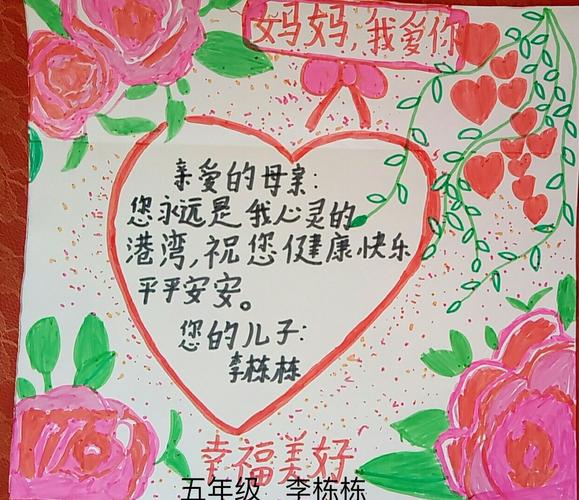 妈妈,我爱你
亲爱的母亲:
您永远是我心灵的
港湾,祝您健康快乐
平平安安。
您的儿子:
李栋栋
幸福美好
五年级 李栋栋